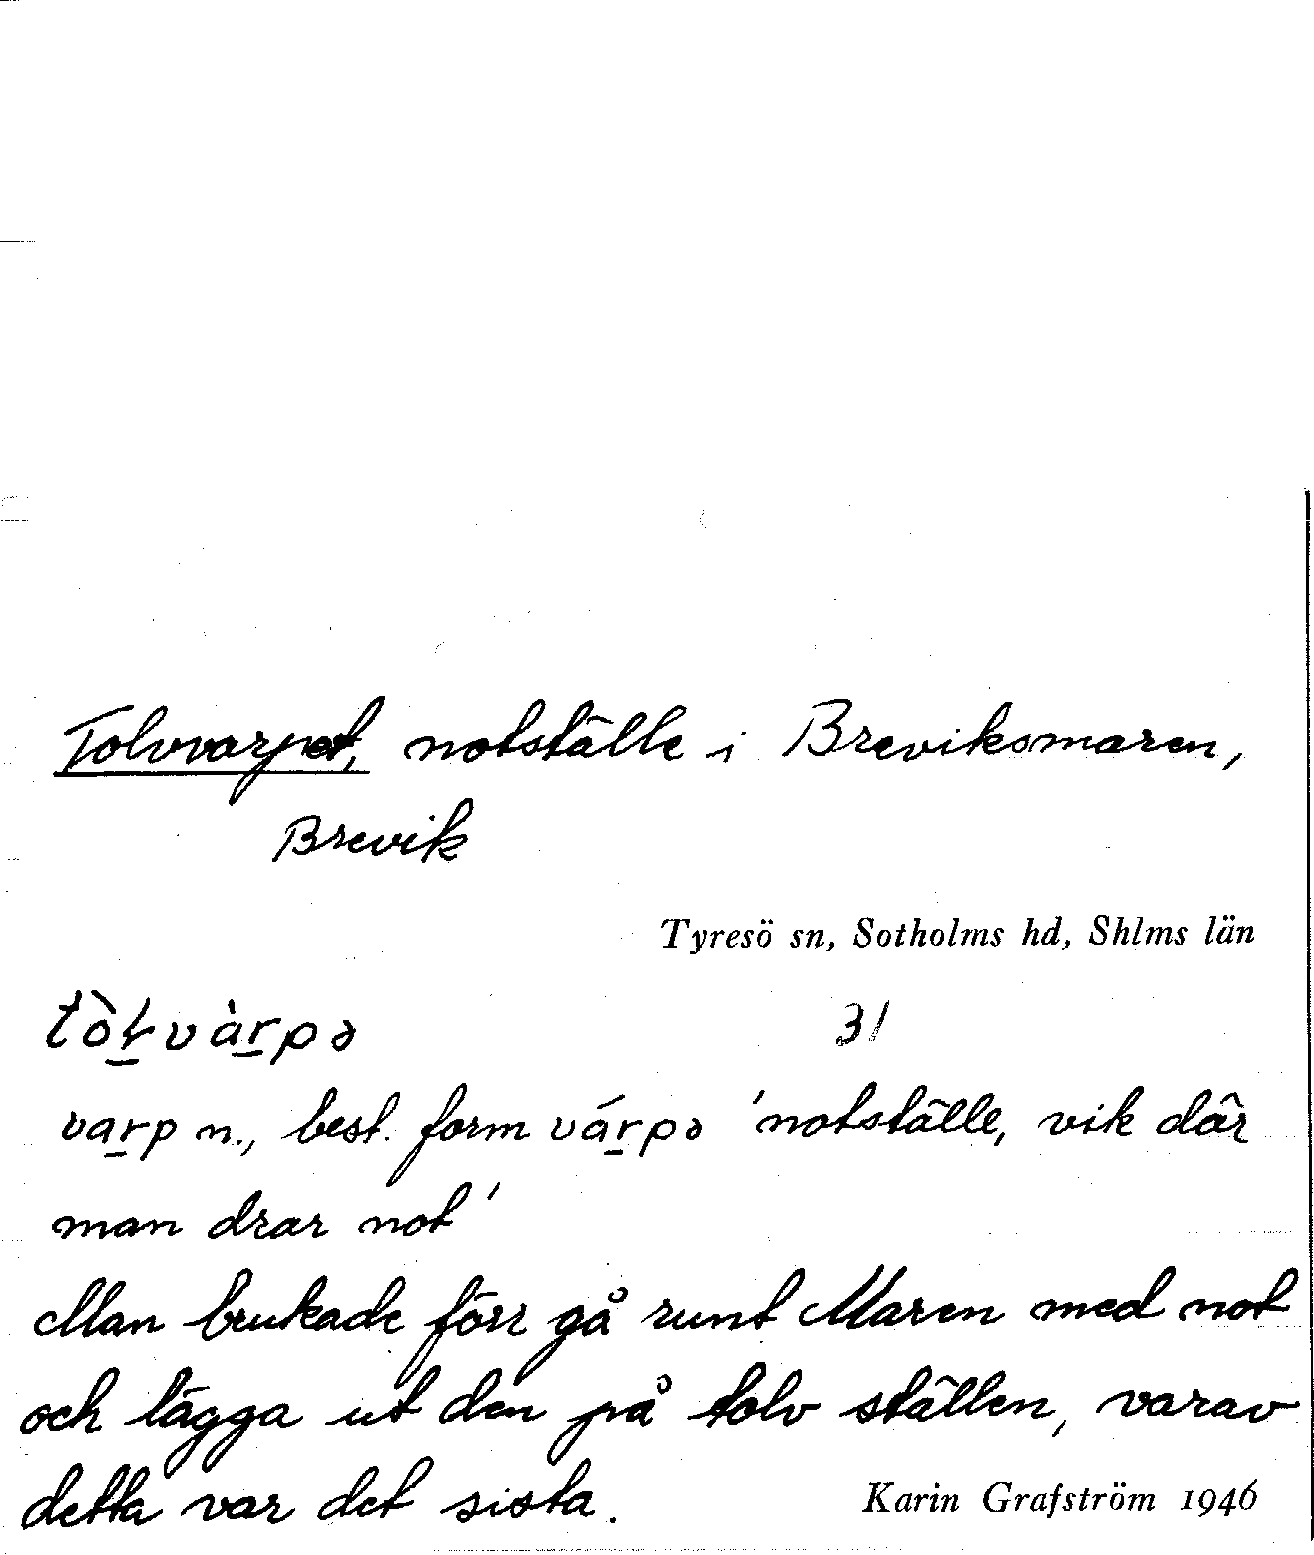 Tolvvarpet, notställe i Breviksmaren,
Brevik
Tyresö sn, Sotholms hd, Shlms län
tòł̱vàṟpə 31
vaṟp n., best. form váṟpə 'notställe, vik där
man drar not'
Man brukade förr gå runt Maren med not
och lägga ut den på tolv ställen, varav
detta var det sista.
Karin Grafström 1946